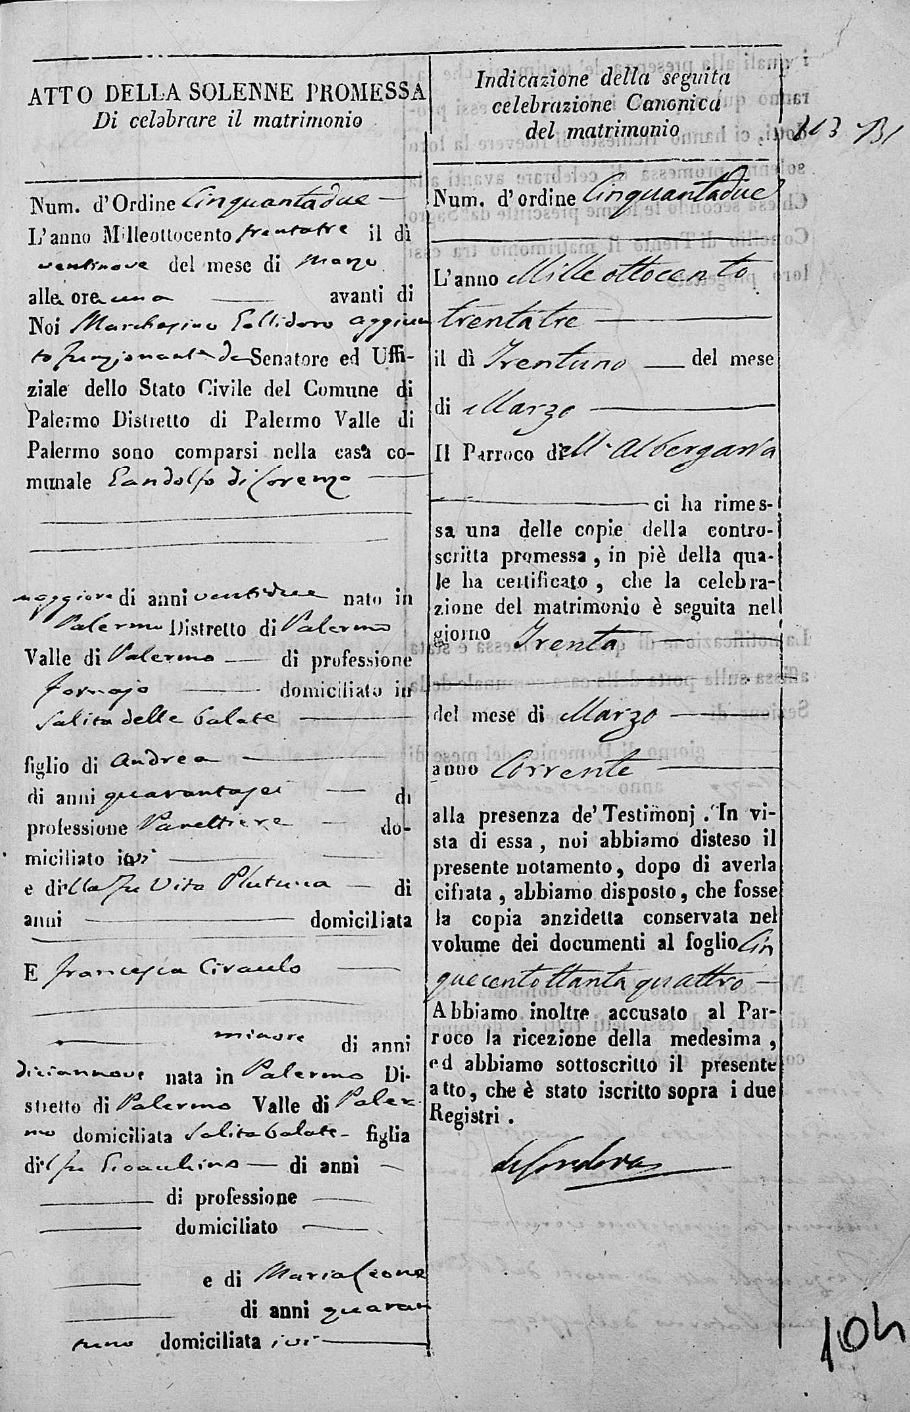 ATTO DELLA SOLENNE PROMESSA
Di celebrare il matrimonio
Num. d'Ordine Cinquantadue
L'anno Milleottocento trentatre il dì
ventinove del mese di Marzo
alle ore una avanti di
Noi Marchesino Gallidoro aggiun
to funzionante da Senatore ed Uffi-
ziale dello Stato Civile del Comune di
Palermo Distretto di Palermo Valle di
Palermo sono comparsi nella casa co-
munale Gandolfo di Lorenzo
maggiore di anni ventidue nato in
Palermo Distretto di Palermo
Valle di Palermo di professione
fornajo domiciliato in
Salita delle balate
figlio di Andrea
di anni quarantasei di
professione Panettiere do-
miciliato ivi
e di lla fu Vita di
anni domiciliata
E Francesca Ciraulo
minore di anni
diciannove nata in Palermo Di-
stretto di Palermo Valle di Paler
mo domiciliata Salita balate figlia
di l fu Gioacchino di anni
di professione
domiciliato
e di Maria Leone
di anni quaran
tuno domiciliata ivi
Indicazione della seguita
celebrazione Canonica
del matrimonio
Num. d'ordine Cinquantadue
L'anno Mille ottocento
trentatre
il dì Trentuno del mese
di Marzo
Il Parroco di ll' Albergaria
ci ha rimes-
sa una delle copie della contro-
scritta promessa, in piè della qua-
le ha certificato, che la celebra-
zione del matrimonio è seguita nell
giorno Trenta
del mese di Marzo
anno Corrente
alla presenza de' Testimonj. In vi-
sta di essa, noi abbiamo disteso il
presente notamento, dopo di averla
cifrata, abbiamo disposto, che fosse
la copia anzidetta conservata nel
volume dei documenti al foglio Cin
quecentottanta quattro
Abbiamo inoltre accusato al Par-
roco la ricezione della medesima,
ed abbiamo sottoscritto il presente
atto, che è stato iscritto sopra i due
Registri.
104